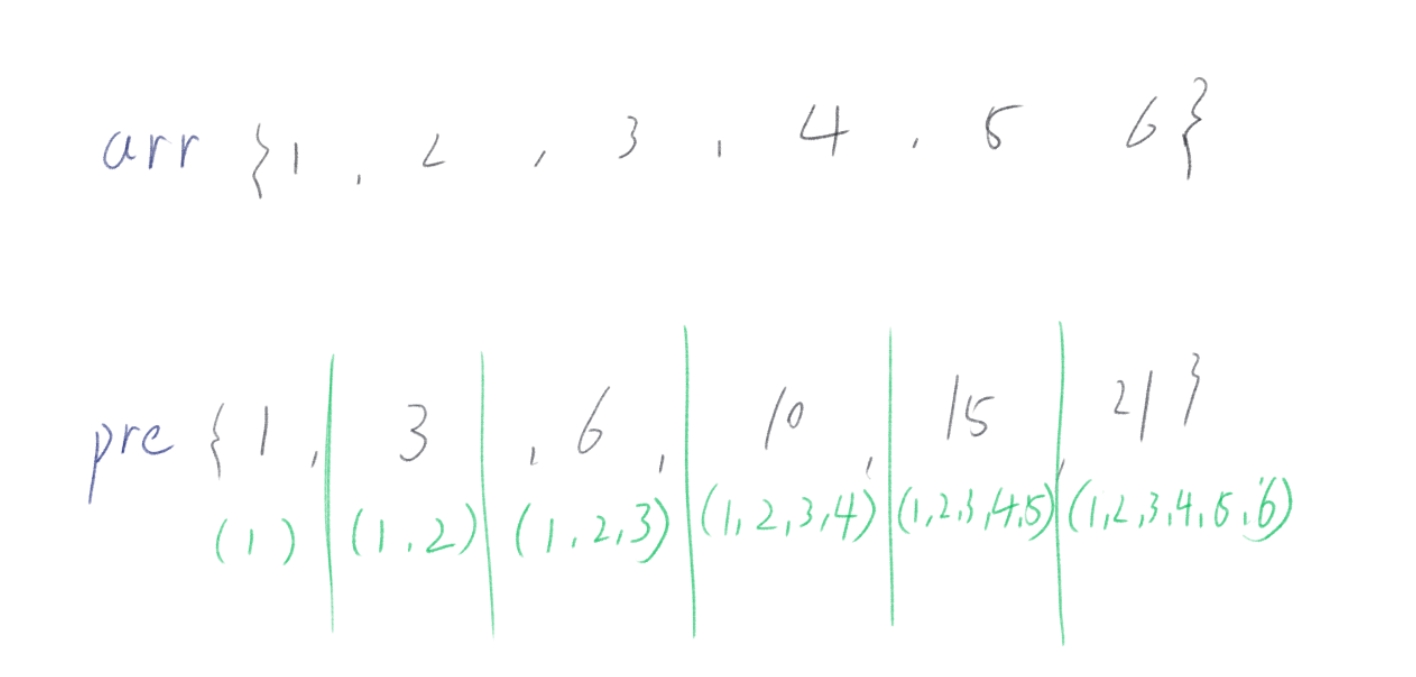 arr {1 , 2 , 3 , 4 , 5 6}
pre {1 , 3 , 6 , 10 , 15 , 21}
(1) (1,2) (1,2,3) (1,2,3,4) (1,2,3,4,5) (1,2,3,4,5,6)